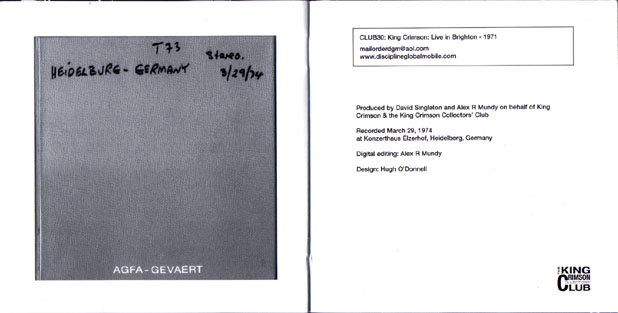 T73
Stereo.
HEIDELBURG - GERMANY
3/29/74
AGFA-GEVAERT
CLUB30: King Crimson: Live in Brighton - 1971
mailorderdgm@aol.com
www.disciplineglobalmobile.com
Produced by David Singleton and Alex R Mundy on behalf of King
Crimson & the King Crimson Collectors' Club
Recorded March 29, 1974
at Konzerthaus Elzerhof, Heidelberg, Germany
Digital editing: Alex R Mundy
Design: Hugh O'Donnell
KING
CRIMSON
CLUB